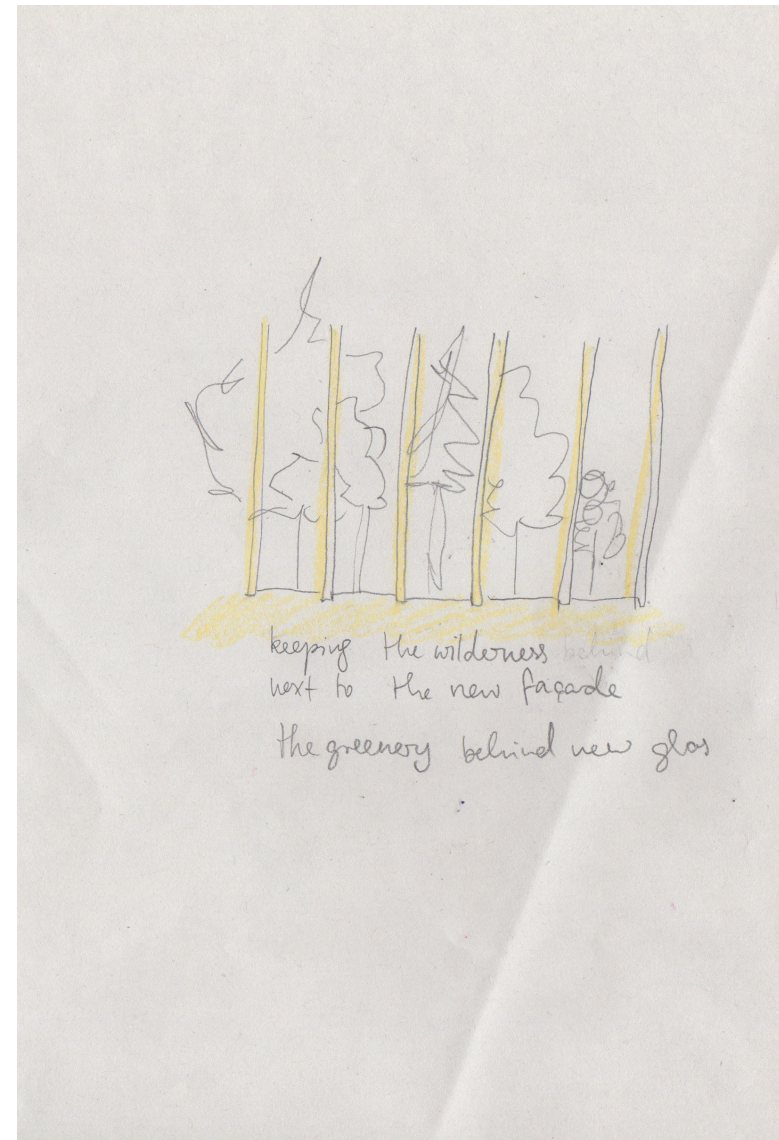 keeping the wilderness behind
next to the new façade
the greenery behind new glas